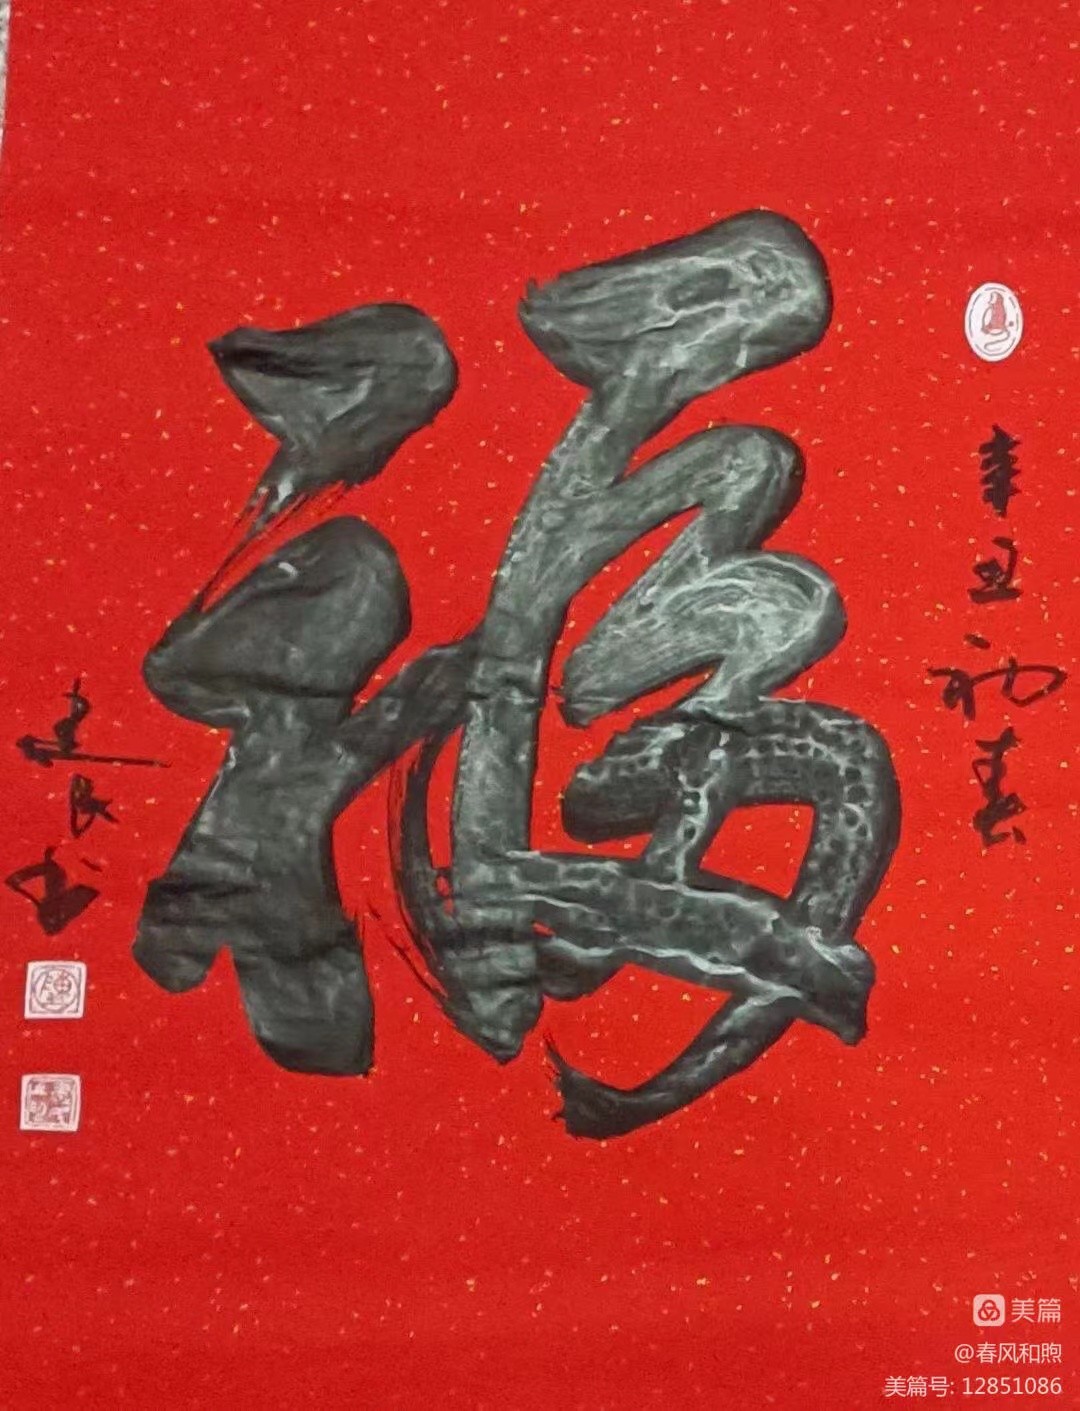 辛丑初春
福
建民书
美篇
@春风和煦
美篇号: 12851086